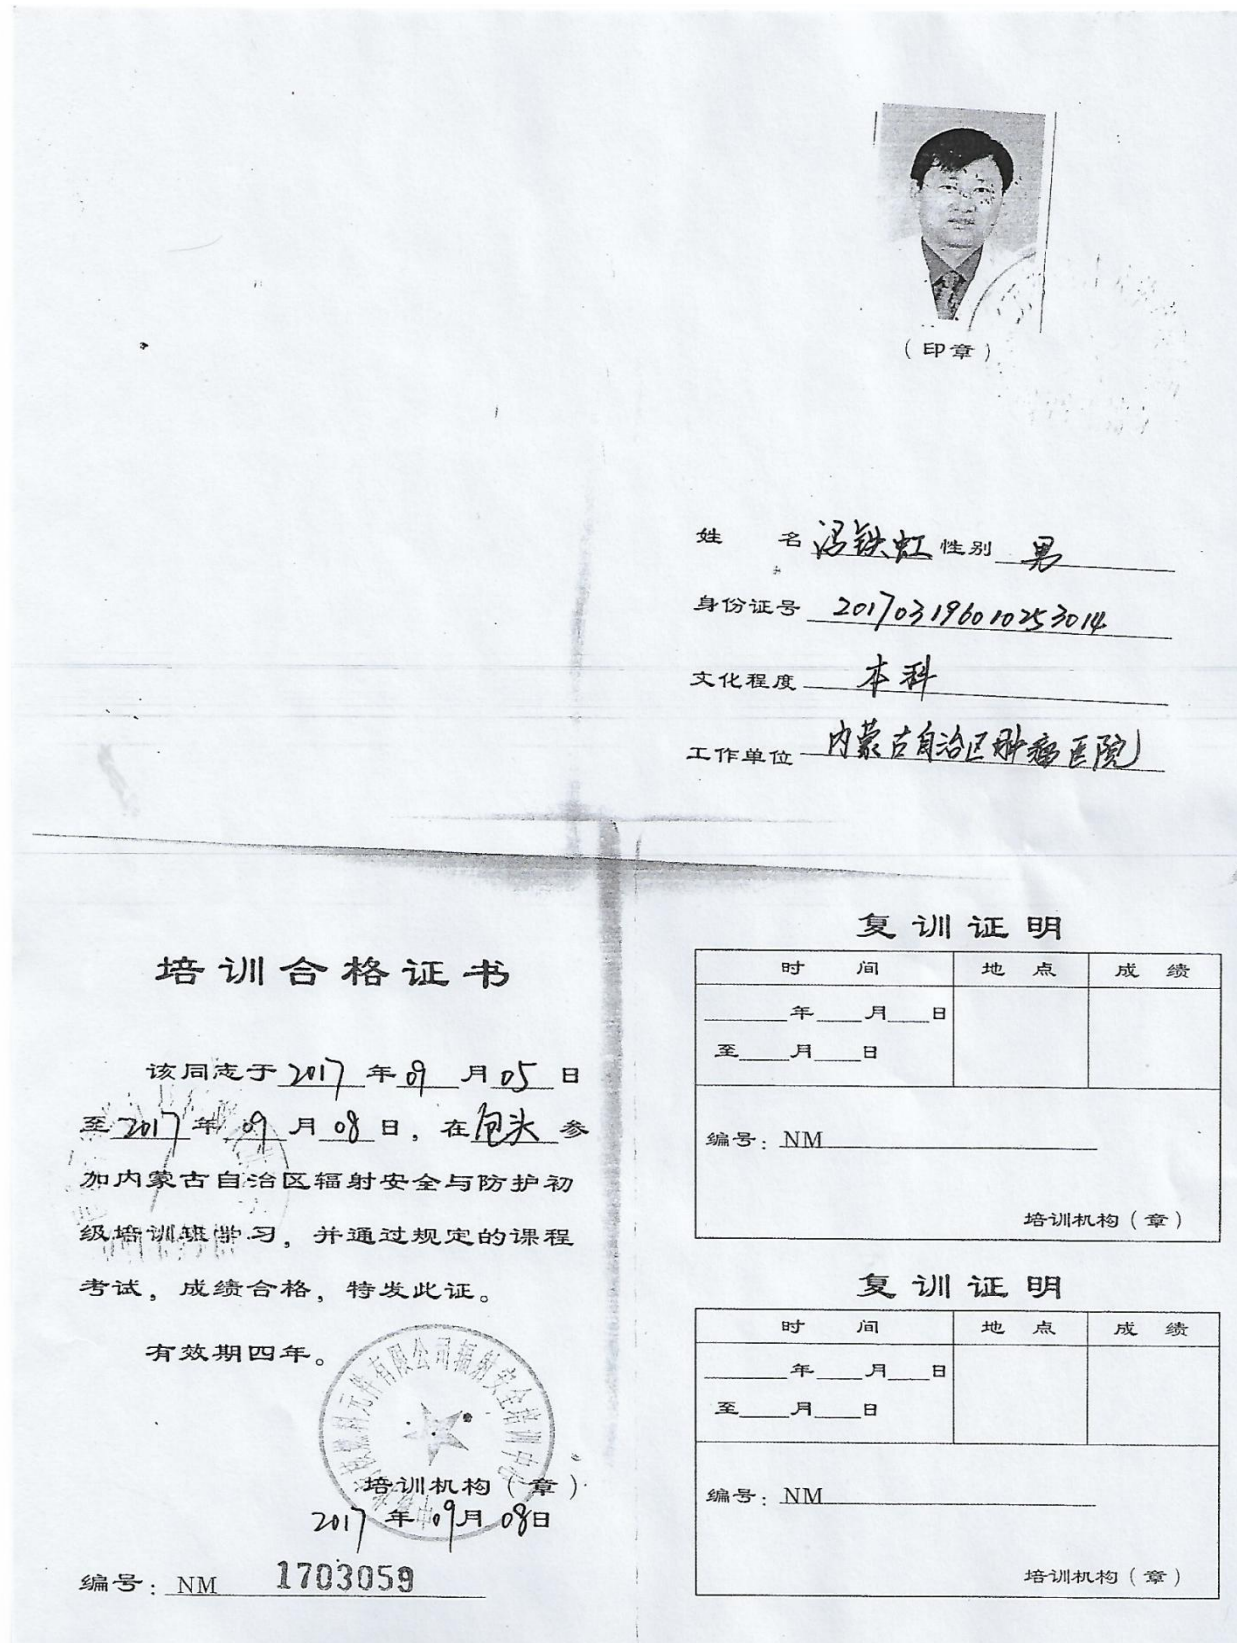 （印章）
姓 名 冯铁虹 性别 男
身份证号 201703196010253014
文化程度 本科
工作单位 内蒙古自治区肿瘤医院
培训合格证书
该同志于 2017 年 09 月 05 日
至 2017 年 09 月 08 日，在 包头 参
加内蒙古自治区辐射安全与防护初
级培训班学习，并通过规定的课程
考试，成绩合格，特发此证。
有效期四年。
培训机构（章）
2017 年 09 月 08 日
编号：NM 1703059
复训证明
时 间 地 点 成 绩
年 月 日
至 月 日
编号：NM
培训机构（章）
复训证明
时 间 地 点 成 绩
年 月 日
至 月 日
编号：NM
培训机构（章）